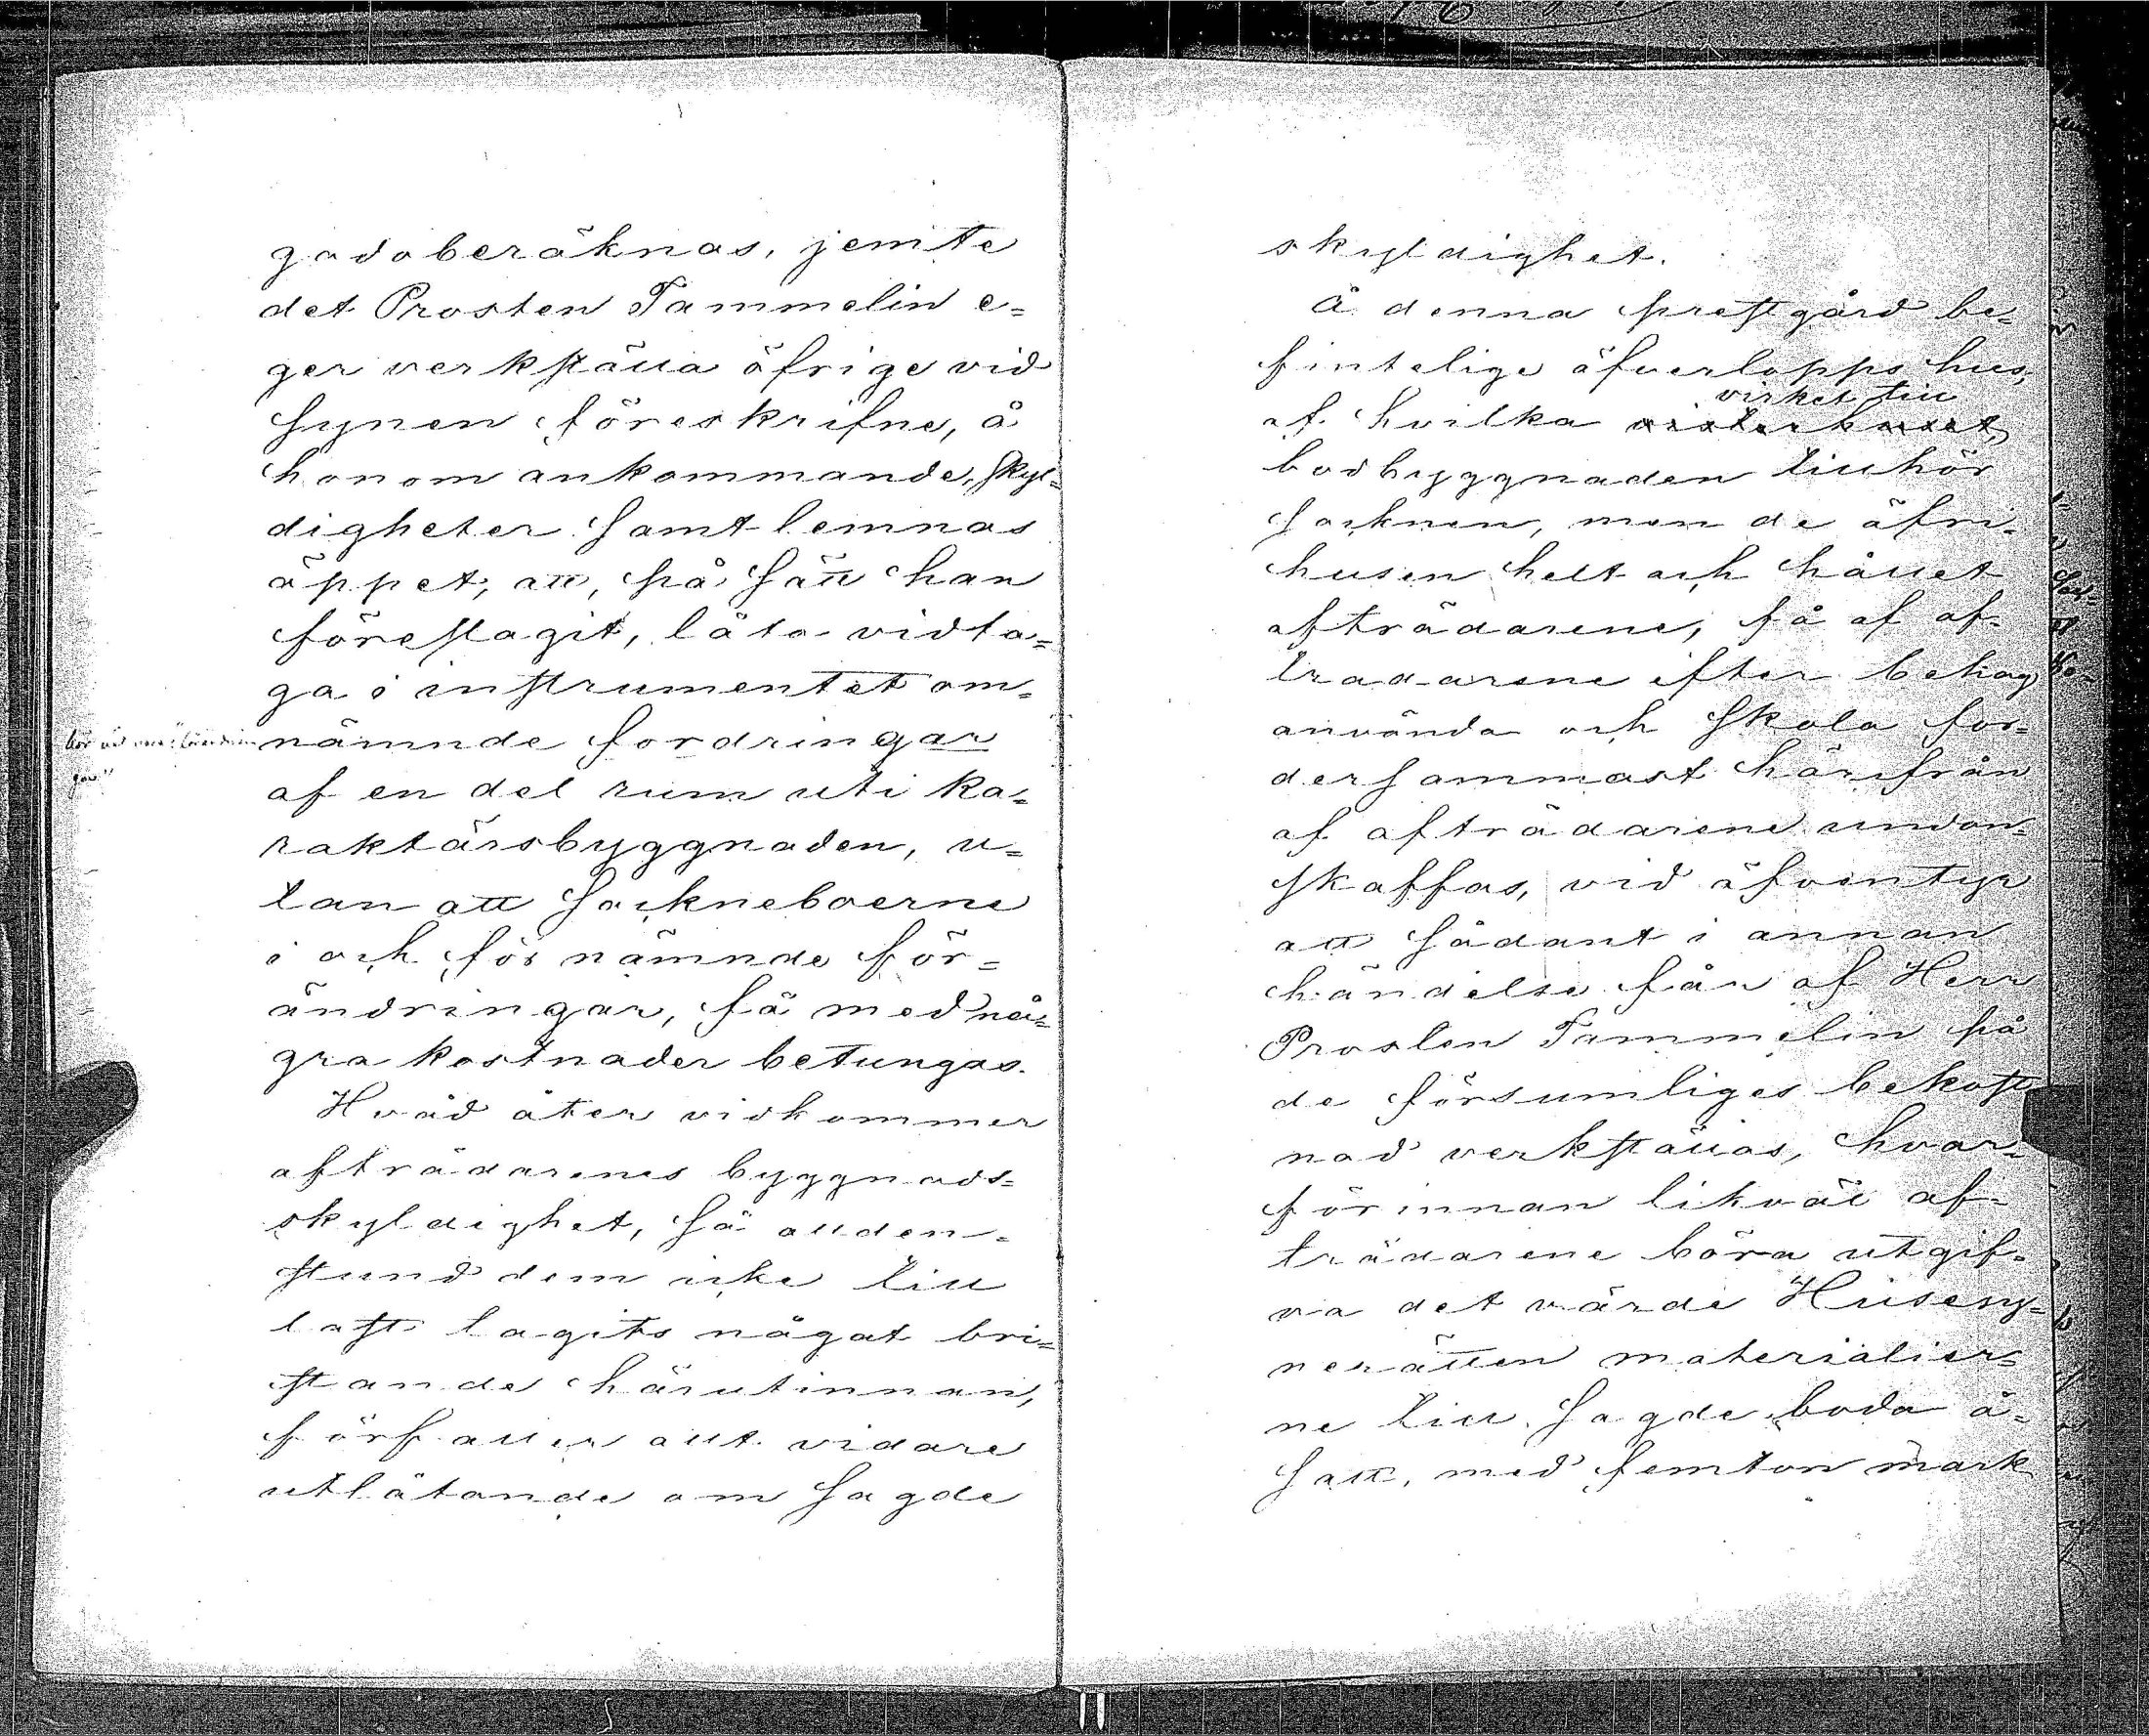 godoberäknas, jemte
det Prosten Tammelin e=
ger verkställa öfrige vid
Synen föreskrifne, å
honom ankommande, skyl=
digheter samt lemnas
öppet, att, på sätt han
föreslagit, låta vidta=
ga i instrumentet om=
nämnde fordringar
af en del rum uti ka=
raktärsbyggnaden, u=
tan att Sockneboerne
i och för nämnde för=
ändringar, få med nå=
gra kostnader betungas.
Hvad åter vidkommer
afträdarenes byggnads=
skyldighet, så allden=
stund dem icke till
last lagits något bri=
stande härutinnan,
förfaller allt vidare
utlåtande om sagde
skyldighet.
Å denna prestgård be=
fintelige öfverlopps hus,
virket till
af hvilka
bodbyggnaden tillhör
Socknen, men de öfri=
husen helt och hållet
afträdarene, få af af=
trädarene efter behag
använda och skola for=
dersammast härifrån
af afträdarene undan=
skaffas, vid äfventyr
att sådant i annan
händelse får af Herr
Prosten Tammelin på
de försumliges bekost
nad verkställas, hvar=
förinnan likväl af=
trädarene böra utgif=
va det värde Husesy=
nerätten materialier=
ne till sagde boda å=
satt, med femton mark